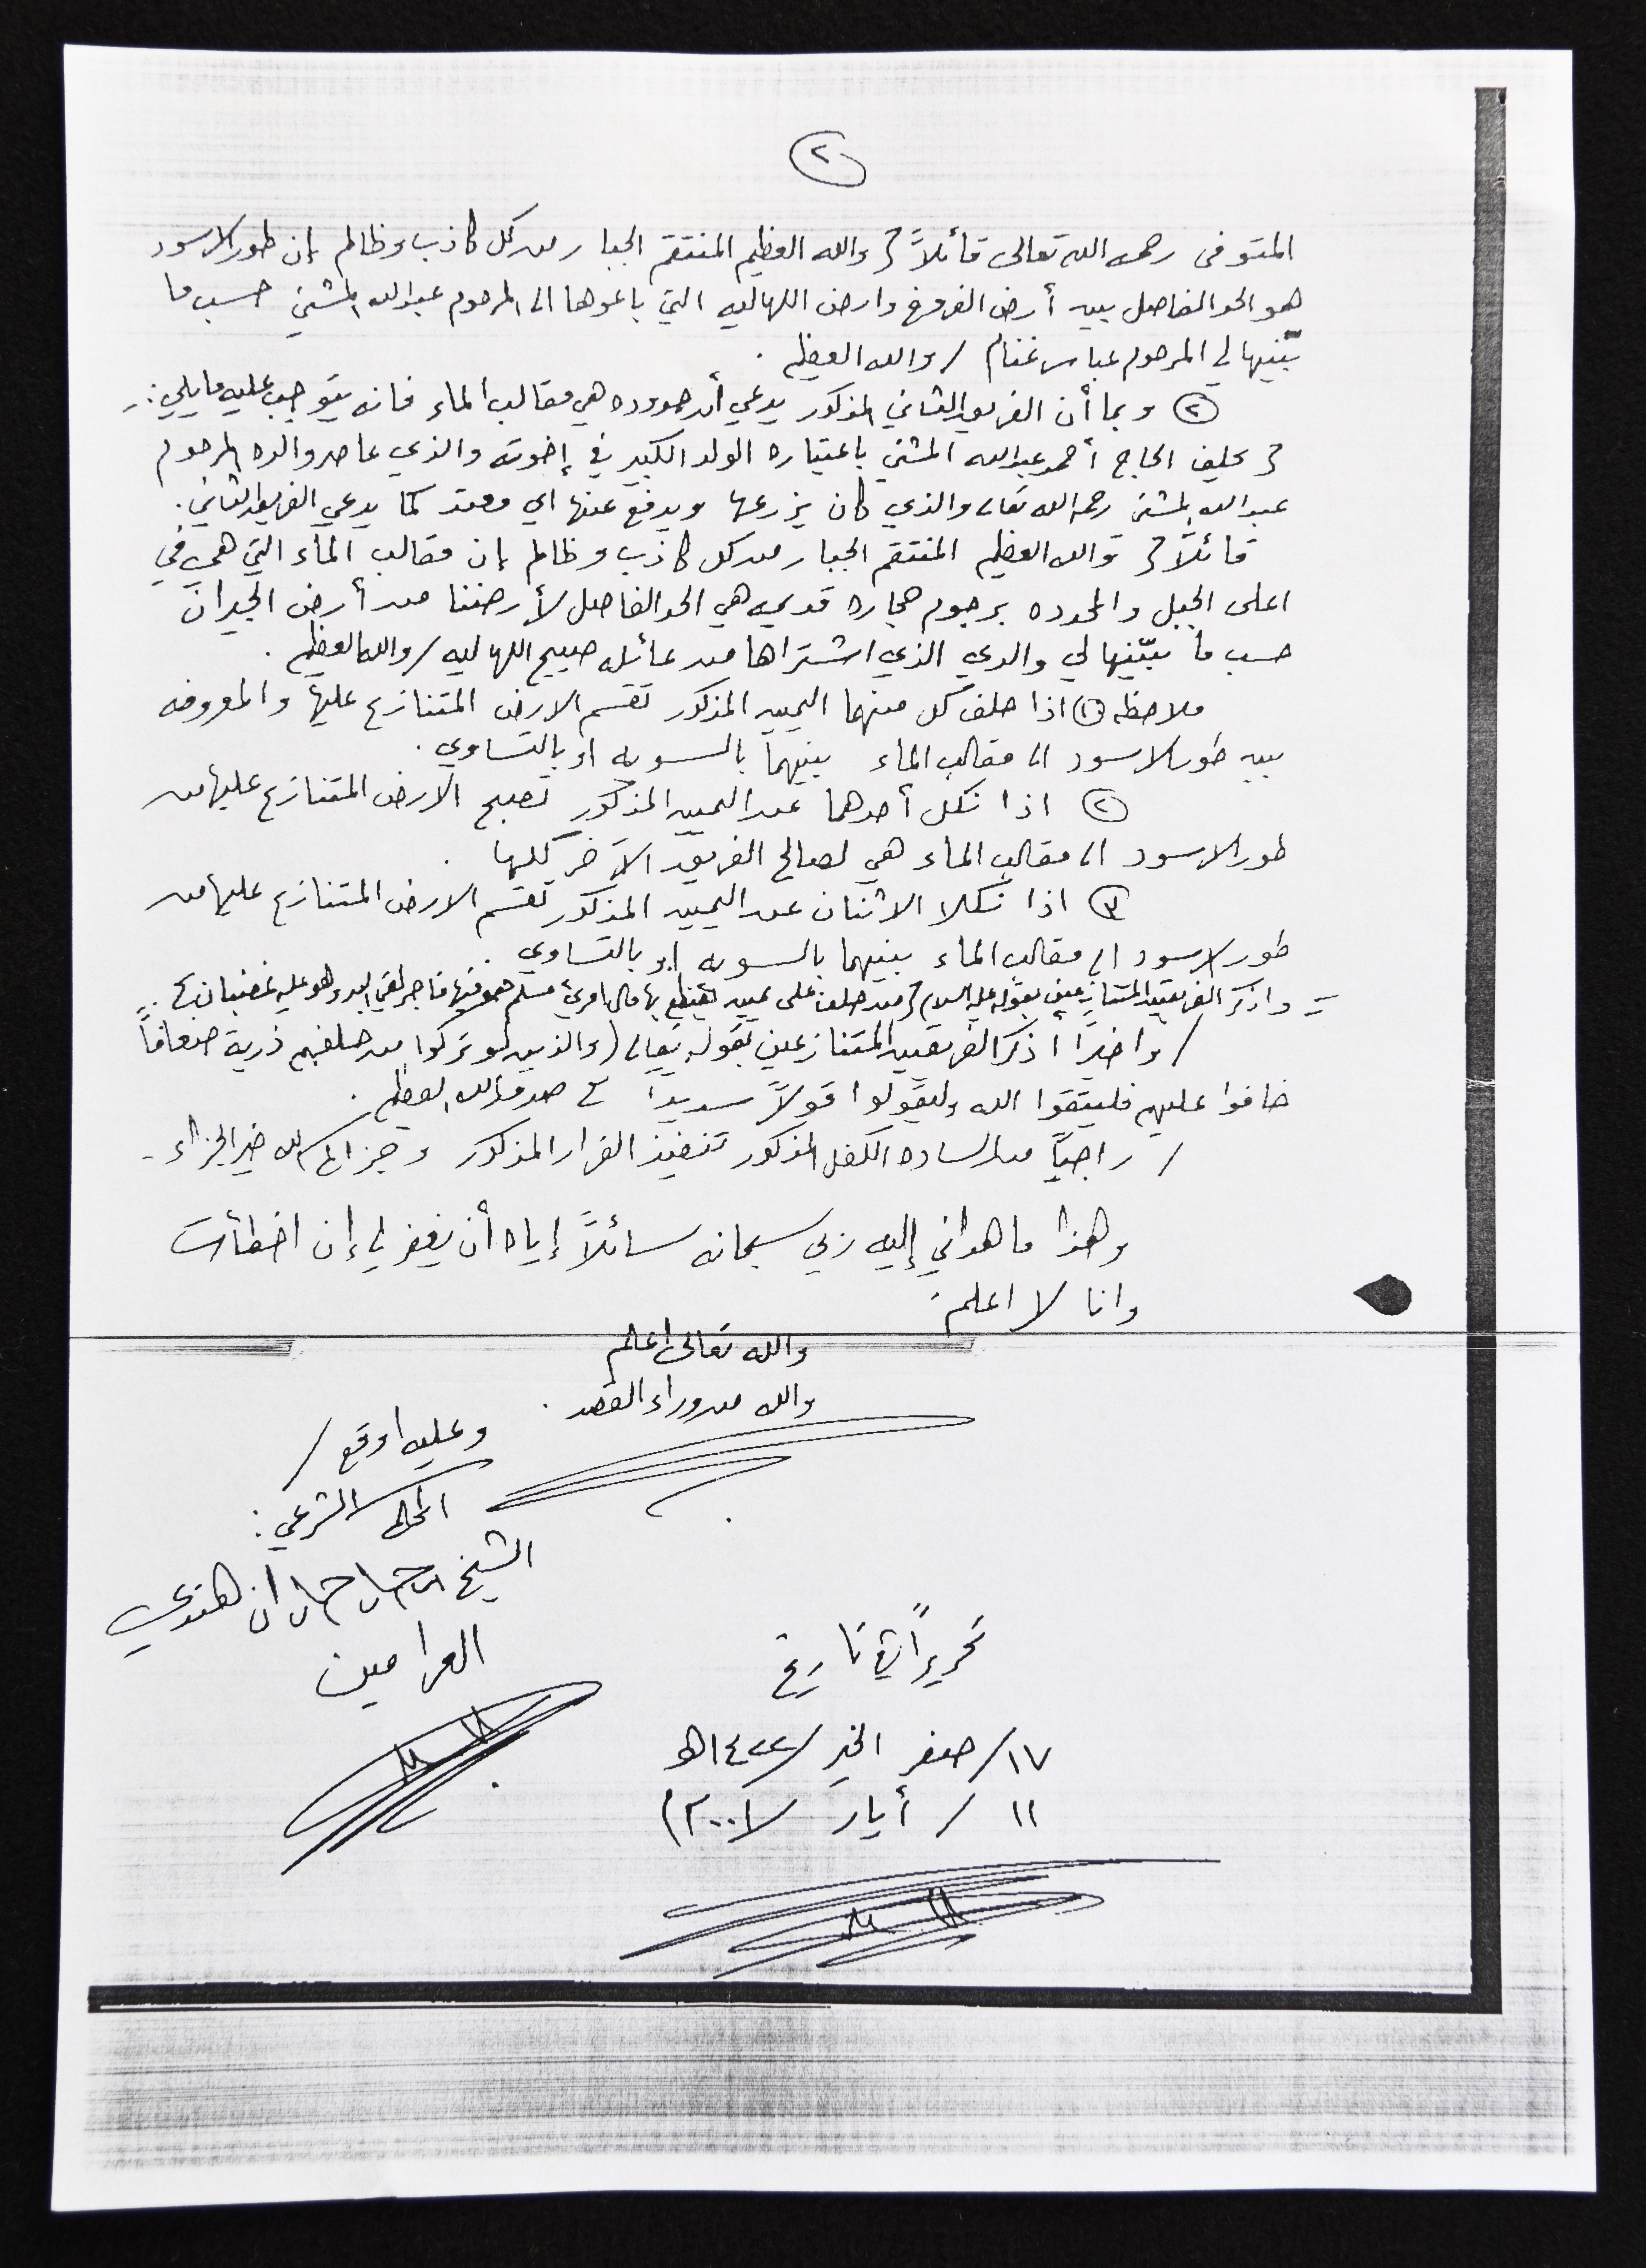 ٢
المتوفى رحمه الله تعالى قائلاً { والله العظيم المنتقم الجبار من كل كاذب وظالم إن طور الاسود
هو الحد الفاصل بين أرض الفروخ وارض اللهاليه التي باعوها الى المرحوم عبدالله المشني حسب ما
بيّنها لي المرحوم عباس غنام / والله العظيم .
٢ وبما أن الفريق الثاني المذكور يدعي أن حدوده هي مقالب الماء فانه يتوجب عليه ما يلي :-
{ يحلف الحاج أحمد عبدالله المشني باعتباره الولد الكبير في إخوته والذي عاصر والده المرحوم
عبدالله المشني رحمه الله تعالى والذي كان يزرعها ويدفع عنها اي معتد كما يدعي الفريق الثاني .
قائلاً { والله العظيم المنتقم الجبار من كل كاذب وظالم إن مقالب الماء التي هي في
اعلى الجبل والمحدده برجوم حجاره قديمه هي الحد الفاصل لأرضنا من أرض الجيران
حسب ما بيّنها لي والدي الذي اشتراها من عائلة صبيح اللهاليه / والله العظيم .
ملاحظه ١ اذا حلف كل منهما اليمين المذكور تقسم الارض المتنازع عليها والمعروفه
بين طور الاسود الى مقالب الماء بينهما بالسويه او بالتساوي .
٢ اذا نكل أحدهما عن اليمين المذكور تصبح الارض المتنازع عليها من
طور الاسود الى مقالب الماء هي لصالح الفريق الآخر كلها .
٣ اذا نكلا الاثنان عن اليمين المذكور تقسم الارض المتنازع عليها من
طور الاسود الى مقالب الماء بينهما بالسويه او بالتساوي .
واذكر الفريقين المتنازعين بقوله عليه السلام { من حلف على يمين يقتطع بها مال امرئ مسلم هو فيها فاجر لقي الله وهو عليه غضبان } .
/ واخيراً اذكر الفريقين المتنازعين بقوله تعالى ( والذين لو تركوا من خلفهم ذرية ضعافاً
خافوا عليهم فليتقوا الله وليقولوا قولاً سديداً ) صدق الله العظيم .
/ راجياً من الساده الكفل المذكور تنفيذ القرار المذكور وجزاكم الله خير الجزاء -
وهذا ما هداني إليه ربي سبحانه سائلاً إياه أن يغفر لي إن اخطأت
وانا لا اعلم .
والله تعالى اعلم
والله من وراء القصد .
وعليه اوقع /
المحكم الشرعي :
الشيخ هندي
العرامين
تحريراً في تاريخ
١٧ / صفر الخير / ١٤٢٢هـ
١١ / أيار / ٢٠٠١م